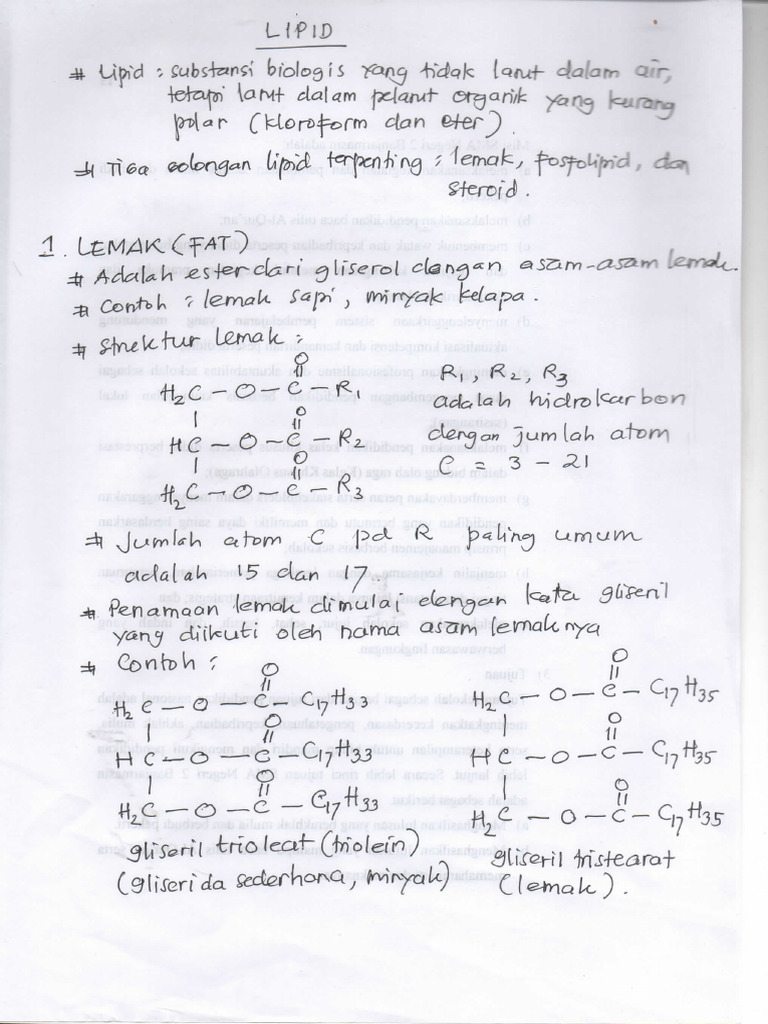 LIPID
# Lipid : substansi biologis yang tidak larut dalam air,
tetapi larut dalam pelarut organik yang kurang
polar (kloroform dan eter).
# Tiga golongan lipid terpenting : lemak, fosfolipid, dan
steroid.
1. LEMAK (FAT)
# Adalah ester dari gliserol dengan asam-asam lemak.
# Contoh : lemak sapi, minyak kelapa.
# Struktur lemak :
O
||
H₂C – O – C – R₁
|
O
||
HC – O – C – R₂
|
O
||
H₂C – O – C – R₃
R₁, R₂, R₃
adalah hidrokarbon
dengan jumlah atom
C = 3 – 21
# Jumlah atom C pd R paling umum
adalah 15 dan 17.
# Penamaan lemak dimulai dengan kata gliseril
yang diikuti oleh nama asam lemaknya
# Contoh :
O
||
H₂C – O – C – C₁₇H₃₃
|
O
||
HC – O – C – C₁₇H₃₃
|
O
||
H₂C – O – C – C₁₇H₃₃
gliseril trioleat (triolein)
(gliserida sederhana, minyak)
O
||
H₂C – O – C – C₁₇H₃₅
|
O
||
HC – O – C – C₁₇H₃₅
|
O
||
H₂C – O – C – C₁₇H₃₅
gliseril tristearat
(lemak).